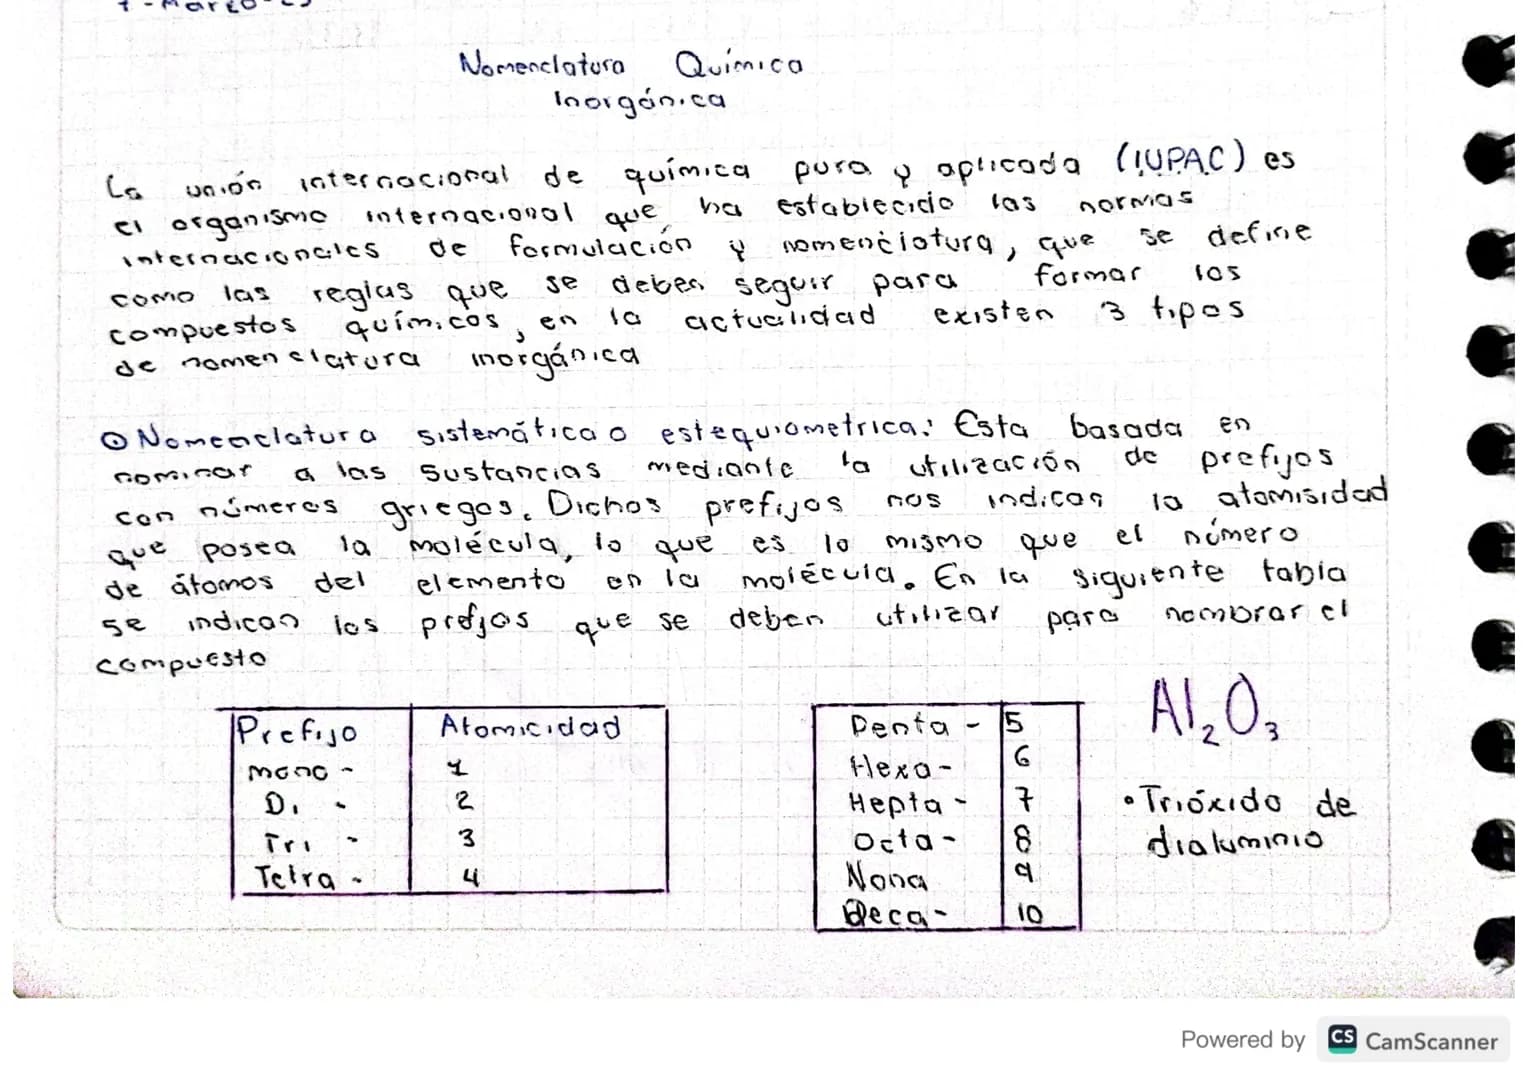 Nomenclatura Química
Inorgánica
La unión internacional de química pura y aplicada (IUPAC) es
el organismo internacional que ha establecido las normas
internacionales de formulación y nomenclatura, que se define
como las reglas que se deben seguir para formar los
compuestos químicos, en la actualidad existen 3 tipos
de nomenclatura inorgánica
Nomenclatura sistemática o estequiometrica: Esta basada en
nominar a las sustancias mediante la utilización de prefijos
con números griegos. Dichos prefijos nos indican la atomisidad
que posea la molécula, lo que es lo mismo que el número
de átomos del elemento en la molécula. En la siguiente tabla
se indican los prefjos que se deben utilizar para nombrar el
compuesto
Prefijo Atomicidad
mono - 1
Di - 2
Tri - 3
Tetra - 4
Penta - 5
Hexa - 6
Hepta - 7
Octa - 8
Nona 9
Deca - 10
Al₂O₃
• Trióxido de
dialuminio
Powered by CS CamScanner